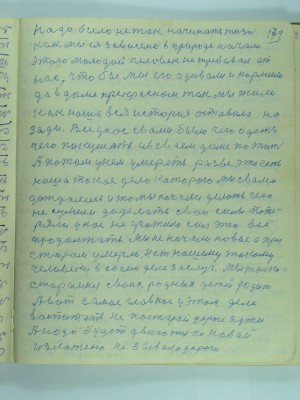 надо было не так начинать жизнь 179
как мы ся зависимо в природе начало
этого молодой человек не требовал от
нас, что бы мы его одивали и кармили
да в доме прекрасном так мы жили
как наша вся история оталась на
зади. Всеравно свами было чего одеть
чего покушать и в своем доме пожит
А потом унем умереть разве это есть
наша такая дело которого мы свами
дождались и то мы начали делать чего
не сумели доделать свои силы поте
ряли у нас не хватило сил это всё
продолжать Мы не начали новое а при
старом умерли, Нет нашему такому
человеку в своем деле заслуг. Мы только
старались своих родных детей родит
А вот самое главное у этом деле
воспитать не постарой дороге идти
А надо будет двигатся по новой
не в своей дороги